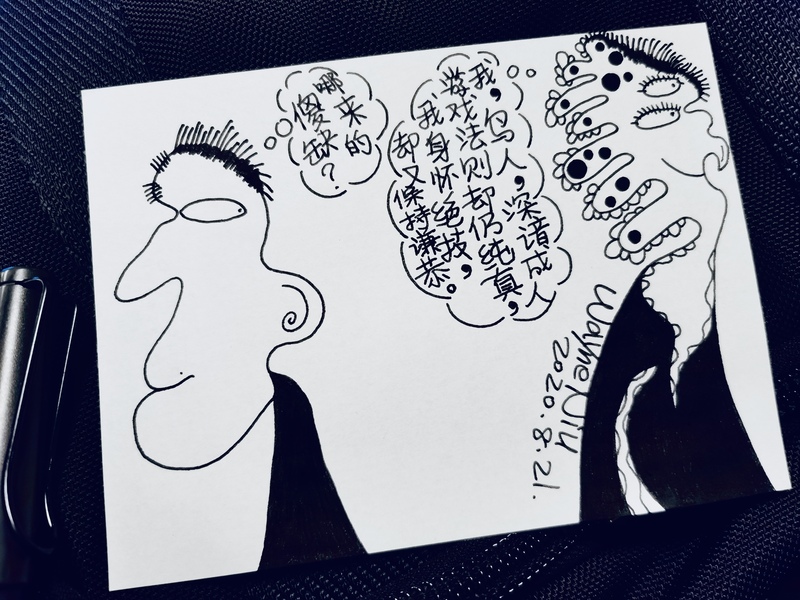 哪来的
傻缺？
我，鸟人，深谙成人
游戏法则却仍纯真，
我身怀绝技，
却又保持谦恭。
Wayne
2020.8.21.